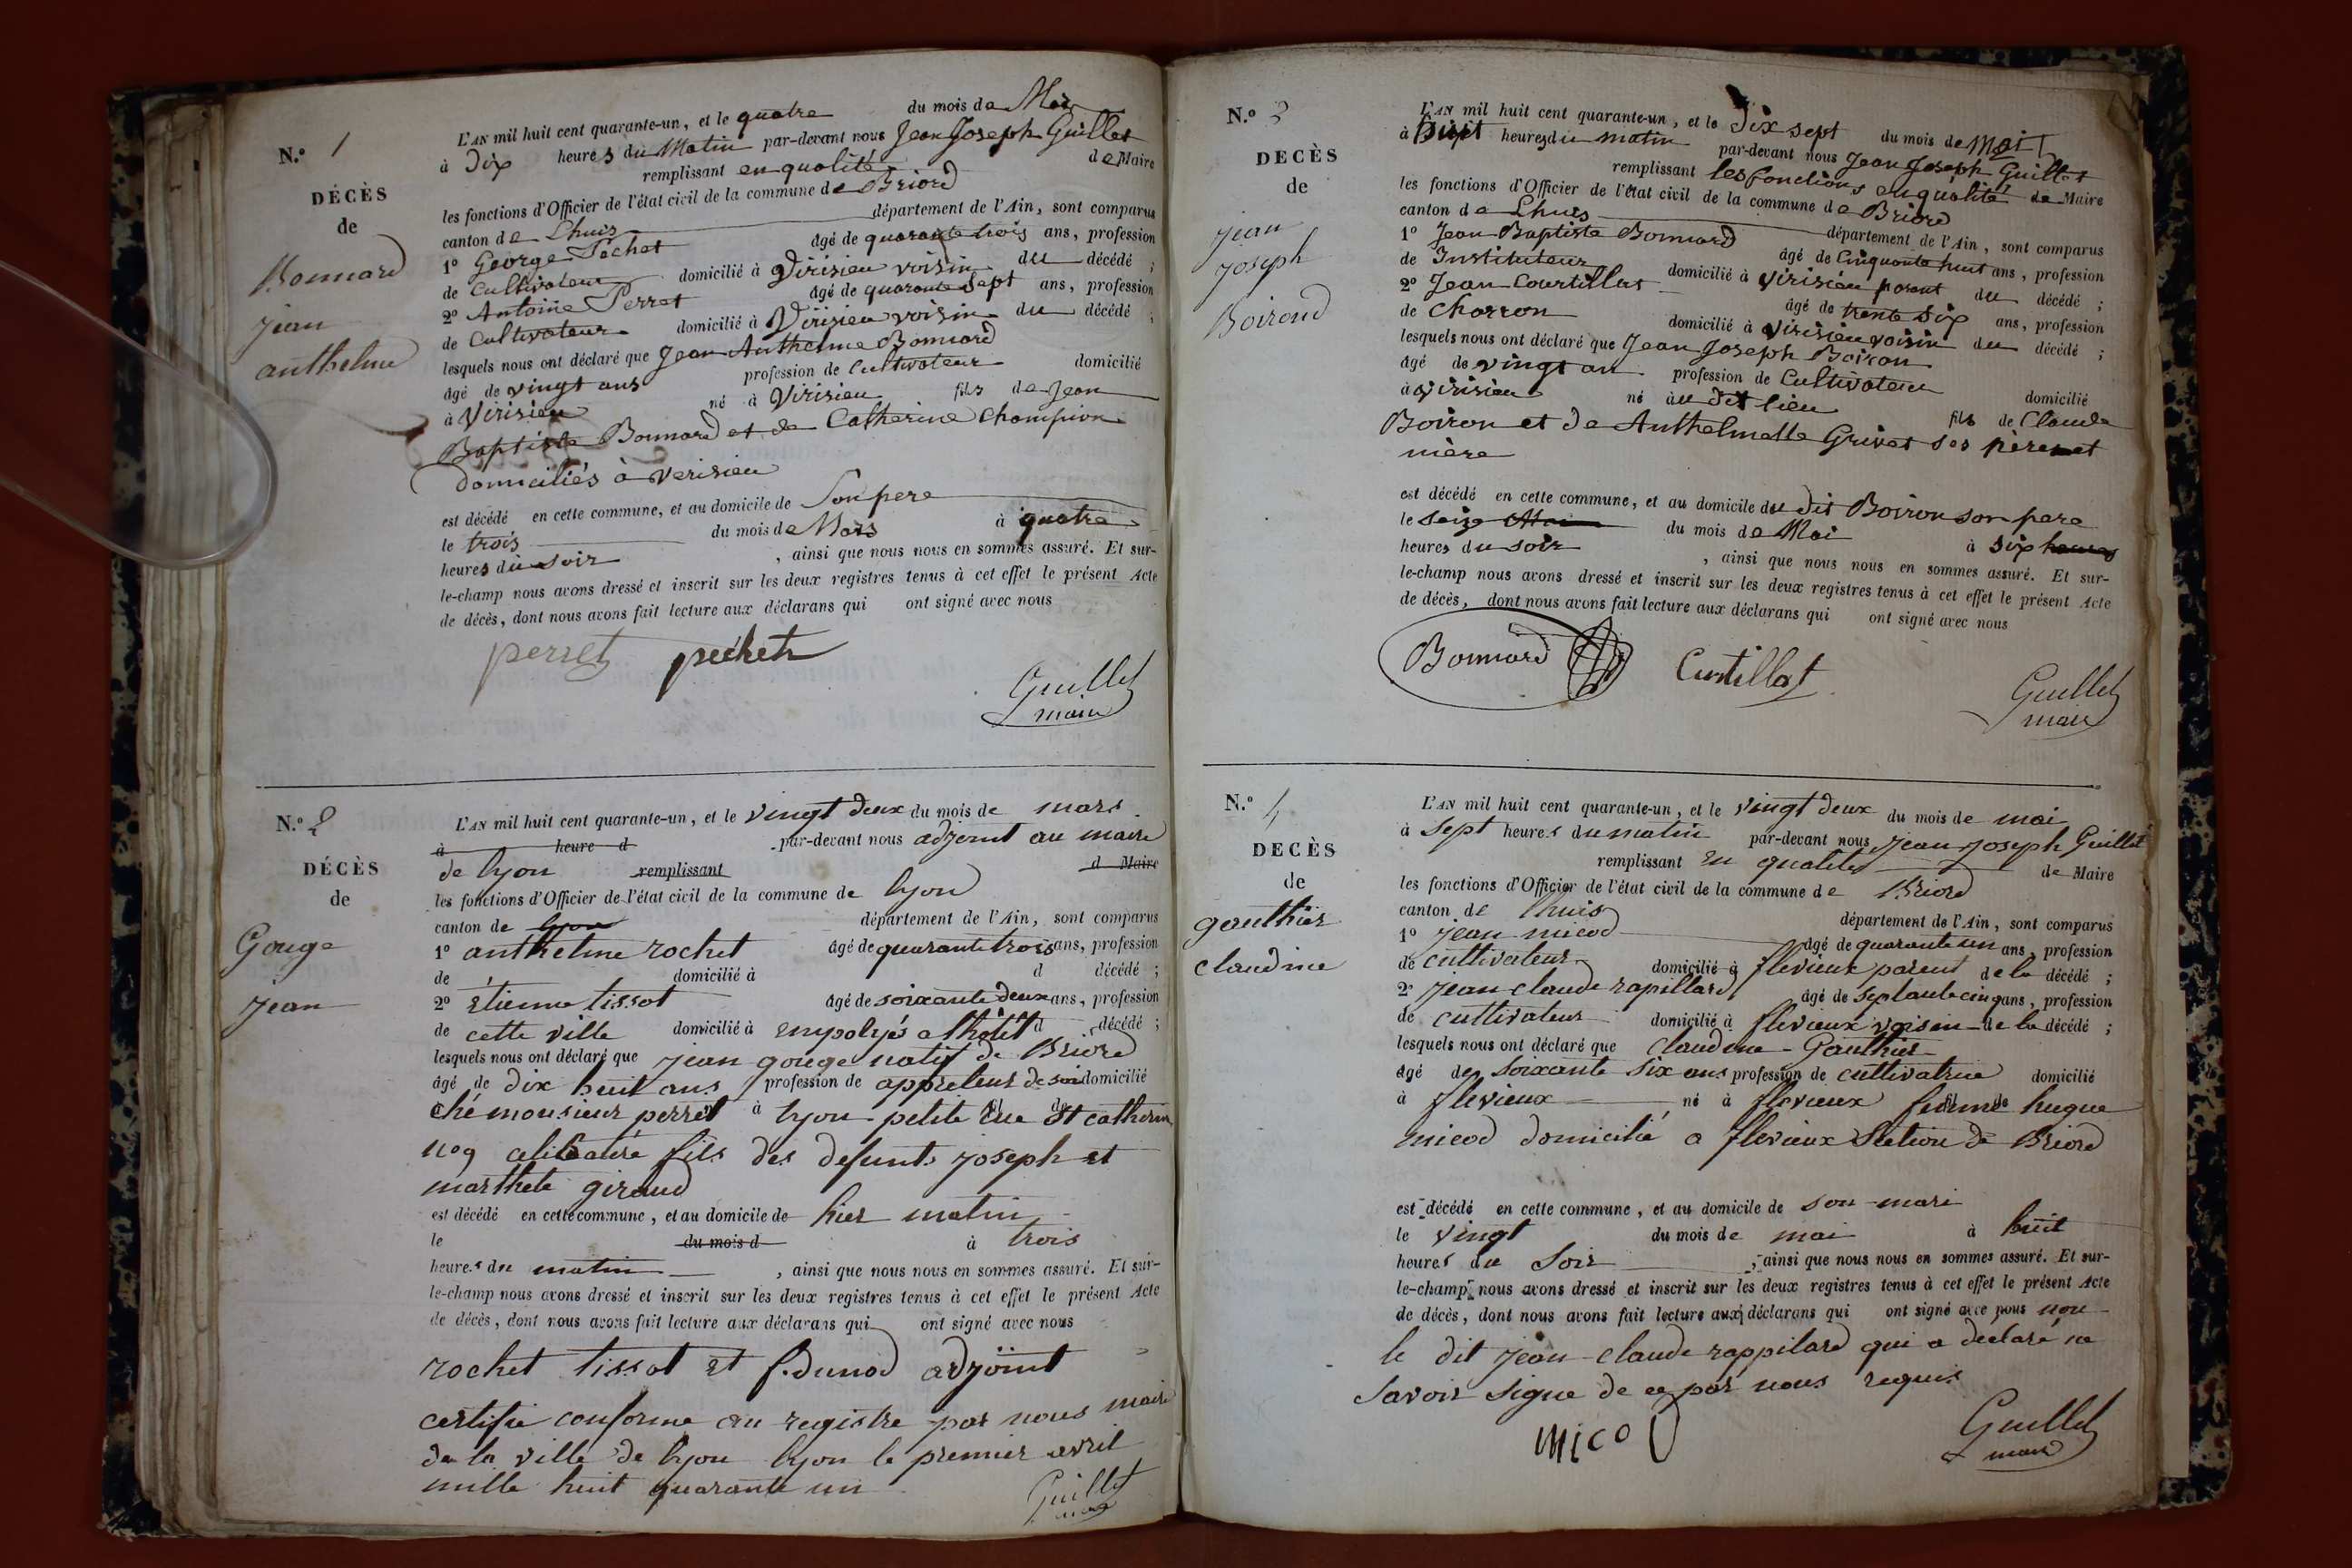 N.º 1
DÉCÈS
de
Bonnard
jean
anthelme
L'AN mil huit cent quarante-un, et le quatre du mois de Mars
à dix heures du Matin par-devant nous Jean Joseph Guillet
remplissant en qualité de Maire
les fonctions d'Officier de l'état civil de la commune de Briord
canton de Lhuis département de l'Ain, sont comparus
1º George Pechet âgé de quarante trois ans, profession
de Cultivateur domicilié à Virisieu voisin du décédé ;
2º Antoine Perret âgé de quarante sept ans, profession
de Cultivateur domicilié à Virisieu voisin du décédé ;
lesquels nous ont déclaré que Jean Anthelme Bonnard
âgé de vingt ans profession de Cultivateur domicilié
à Virisieu né à Virisieu fils de Jean
Baptiste Bonnard et de Catherine Champion
domiciliés à Verisieu
est décédé en cette commune, et au domicile de Son pere
le trois du mois de Mars à quatre
heures du soir , ainsi que nous nous en sommes assuré. Et sur-
le-champ nous avons dressé et inscrit sur les deux registres tenus à cet effet le présent Acte
de décès, dont nous avons fait lecture aux déclarans qui ont signé avec nous
perret pechet
Guillet
maire
N.º 2
DÉCÈS
de
Gouge
jean
L'AN mil huit cent quarante-un, et le vingt deux du mois de mars
à heure d par-devant nous adjoint au maire
de lyon remplissant d Maire
les fonctions d'Officier de l'état civil de la commune de lyon
canton de lyon département de l'Ain, sont comparus
1º anthelme rochet âgé de quarante trois ans, profession
de domicilié à d décédé ;
2º etienne tissot âgé de soixante deux ans, profession
de cette ville domicilié à empolyés a lhôtel d décédé ;
lesquels nous ont déclaré que jean gouge natif de Briord
âgé de dix huit ans profession de appreteur de soie domicilié
ché monsieur perret à lyon petite rue st catherine
nº 9 celibatére fils des defunts joseph et
marthete giraud
est décédé en cette commune, et au domicile de hier matin
le du mois d à trois
heures du matin , ainsi que nous nous en sommes assuré. Et sur-
le-champ nous avons dressé et inscrit sur les deux registres tenus à cet effet le présent Acte
de décès, dont nous avons fait lecture aux déclarans qui ont signé avec nous
rochet tissot et f. dunod adjoint
certifié conforme au registre par nous maire
de la ville de lyon lyon le premier avril
mille huit quarante un
Guillet
maire
N.º 3
DECÈS
de
jean
joseph
Boirond
L'AN mil huit cent quarante-un, et le Dix sept du mois de Mai
à heures du matin par-devant nous Jean Joseph Guillet
remplissant les fonctions en qualité de Maire
les fonctions d'Officier de l'état civil de la commune de Briord
canton de Lhuis département de l'Ain, sont comparus
1º Jean Baptiste Bonnard âgé de Cinquante huit ans, profession
de Instituteur domicilié à Virisieu parent du décédé ;
2º Jean Courtillat âgé de trente six ans, profession
de Charron domicilié à Virisieu voisin du décédé ;
lesquels nous ont déclaré que Jean Joseph Boiron
âgé de vingt an profession de Cultivateur domicilié
à Virisieu né au dit lieu fils de Claude
Boiron et de Anthelmette Grivet ses pères et
mère
est décédé en cette commune, et au domicile du dit Boiron son pere
le seize Mai du mois de Mai à six heures
heures du soir , ainsi que nous nous en sommes assuré. Et sur-
le-champ nous avons dressé et inscrit sur les deux registres tenus à cet effet le présent Acte
de décès, dont nous avons fait lecture aux déclarans qui ont signé avec nous
Bonnard Curtillat
Guillet
maire
N.º 4
DECÈS
de
gauthier
claudine
L'AN mil huit cent quarante-un, et le vingt deux du mois de mai
à sept heures du matin par-devant nous jean joseph Guillet
remplissant en qualité de Maire
les fonctions d'Officier de l'état civil de la commune de Briord
canton de lhuis département de l'Ain, sont comparus
1º jean micod âgé de quarante un ans, profession
de cultivateur domicilié à flevieux parent de la décédé ;
2º jean claude rapillard âgé de septante cinq ans, profession
de cultivateur domicilié à flevieux voisin de la décédé ;
lesquels nous ont déclaré que claudine Gauthier
âgé de soixante six ans profession de cultivatrice domicilié
à flevieux né à flevieux femme hugue
micod domicilié a flevieux Section de Briord
est décédé en cette commune, et au domicile de son mari
le vingt du mois de mai à huit
heures du Soir , ainsi que nous nous en sommes assuré. Et sur-
le-champ nous avons dressé et inscrit sur les deux registres tenus à cet effet le présent Acte
de décès, dont nous avons fait lecture aux déclarans qui ont signé avec nous non
le dit jean claude rappilard qui a déclaré ne
savoir signe de ce par nous requis
micod
Guillet
maire